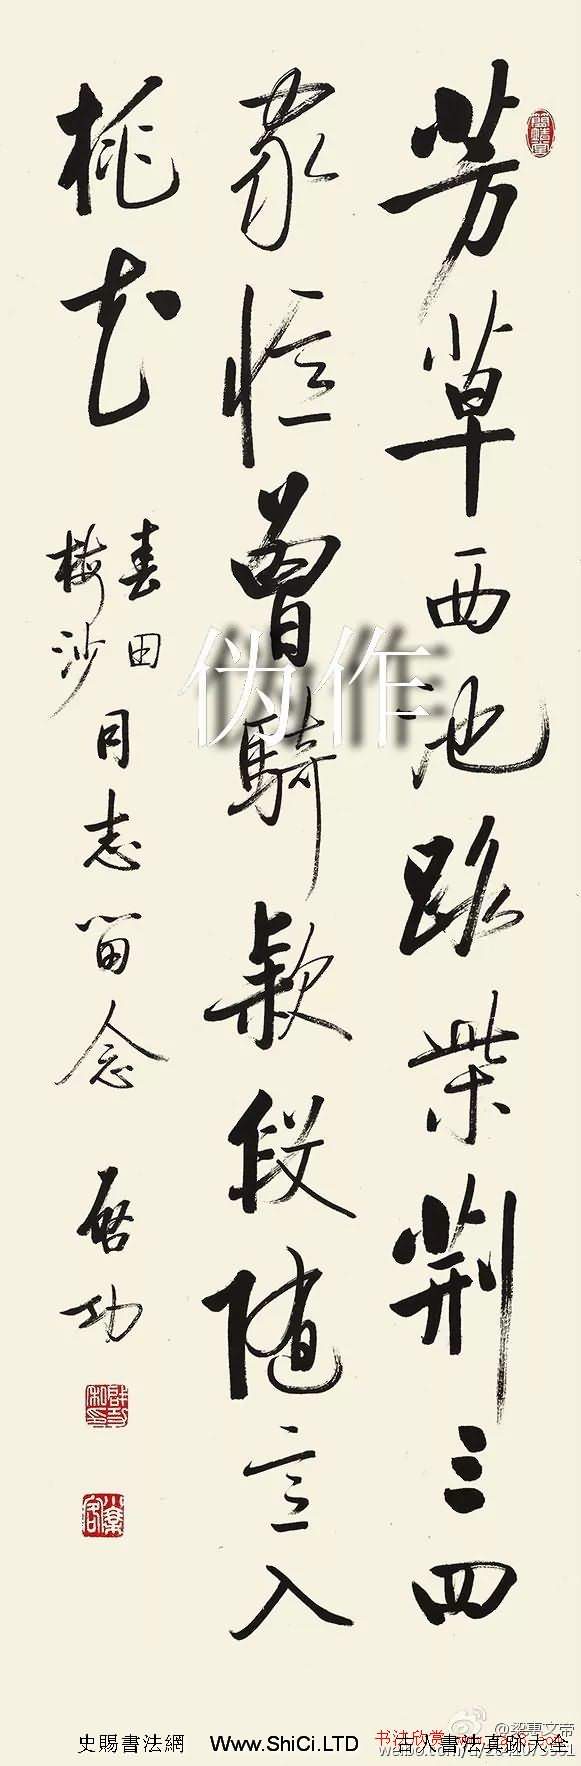 芳草西池路柴荆三四
家忆曾騎款段随意入
桃花
春田
梅沙
同志留念
启功
伪作
史賜書法網 www.ShiCi.LTD 古人書法真跡大全
书法欣赏